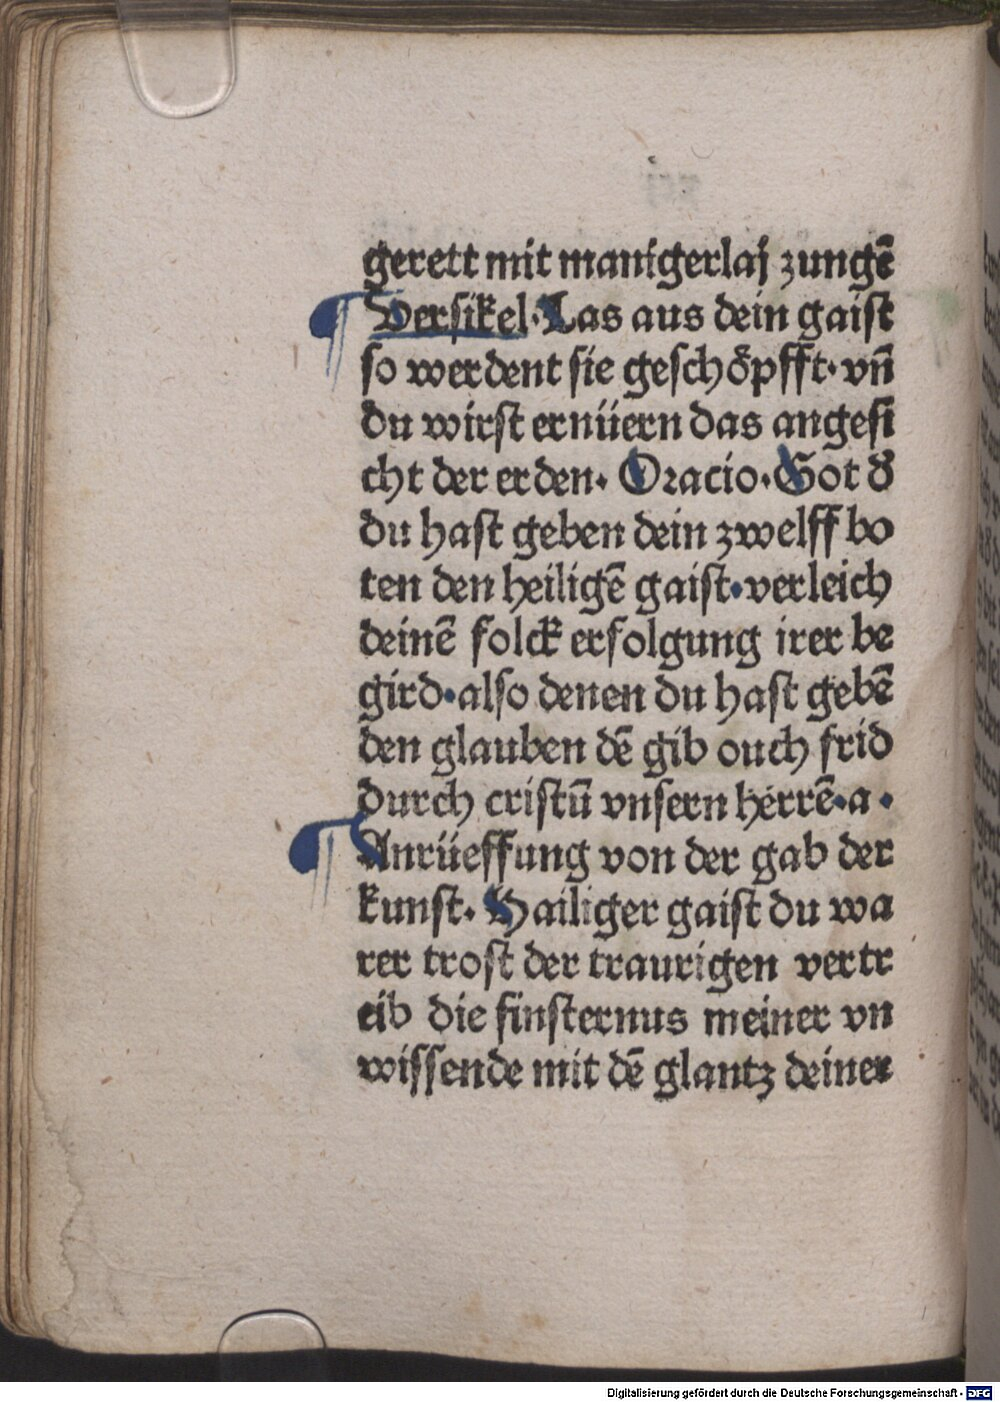 gerett mit manigerlaj zungē
¶ Versikel· Las aus dein gaist
so werdent sie geschöpfft· vn̄
du wirst ernüern das angesi
cht der erden· Oracio· Got d̾
du hast geben dein zwelff bo
ten den heiligē gaist· verleich
deinē folck erfolgung irer be
gird· also denen du hast gebē
den glauben dē gib ouch frid
durch cristū vnsern herrē· a·
¶ Anrüeffung von der gab der
kunst· Hailiger gaist du wa
rer trost der traurigen vertr
eib die finsternus meiner vn
wissende mit dē glantz deiner
Digitalisierung gefördert durch die Deutsche Forschungsgemeinschaft - DFG